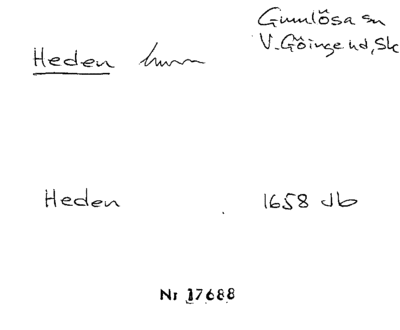 Gumlösa sn
Heden hmn
V. Göinge hd, Sk
Heden 1658 Jb
Nr 17688